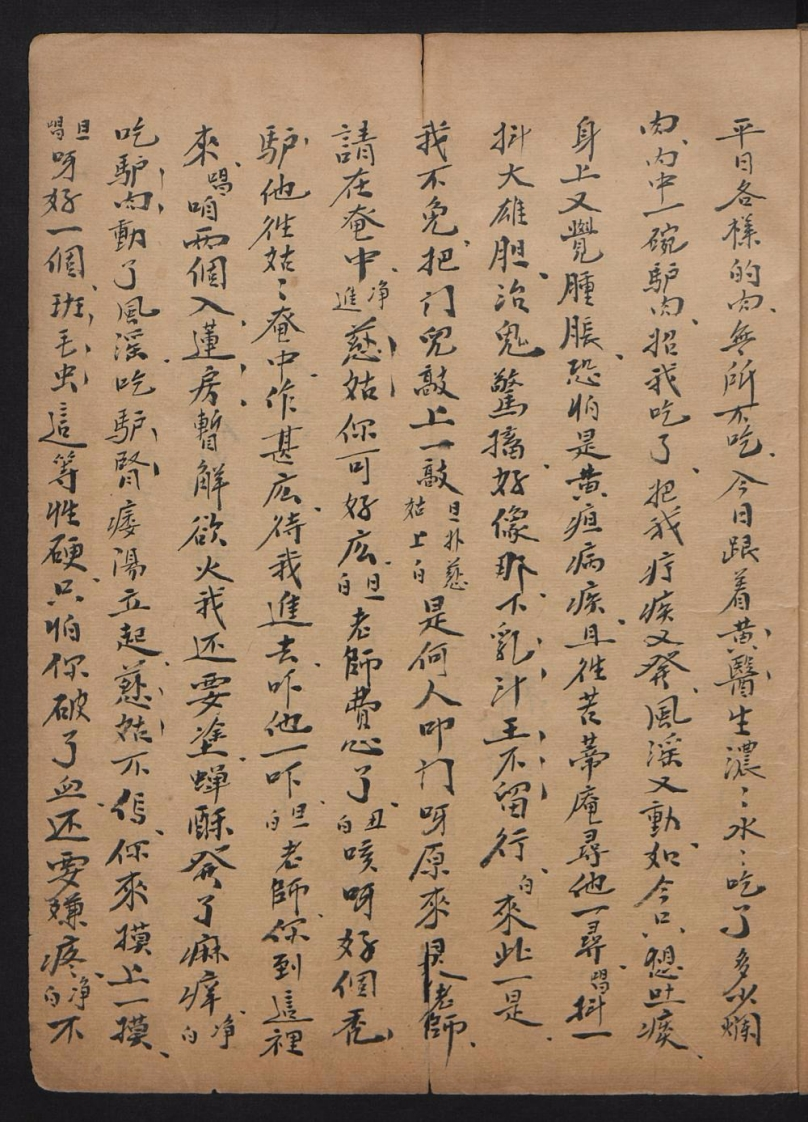 平日各樣的肉無所不吃今日跟着黄醫生濃〻水〻吃了多少爛
肉肉中一碗驴肉招我吃了把我疔疾又發風淫又動如今只想吐痰
身上又覺腫脹恐怕是黄疸病疾且徃苦蒂庵尋他一尋唱抖一
抖大雄胆治鬼驚搐好像那下乳汁王不留行白來此一是
我不免把门兒敲上一敲旦扑慈姑上白是何人叩门呀原來是老師
請在奄中進净慈姑你可好庅旦白老師費心了丑白咳呀好個秃
驴他徃姑〻奄中作甚庅待我進去吓他一吓旦白老師你到這裡
來唱咱兩個入蓮房暫解欲火我还要塗蟬酥發了麻痒净白
吃驴肉動了風淫吃驴腎痿陽立起慈姑不信你來摸上一摸
旦唱呀好一個班毛虫這等性硬只怕你破了血还要嫌疼净白不